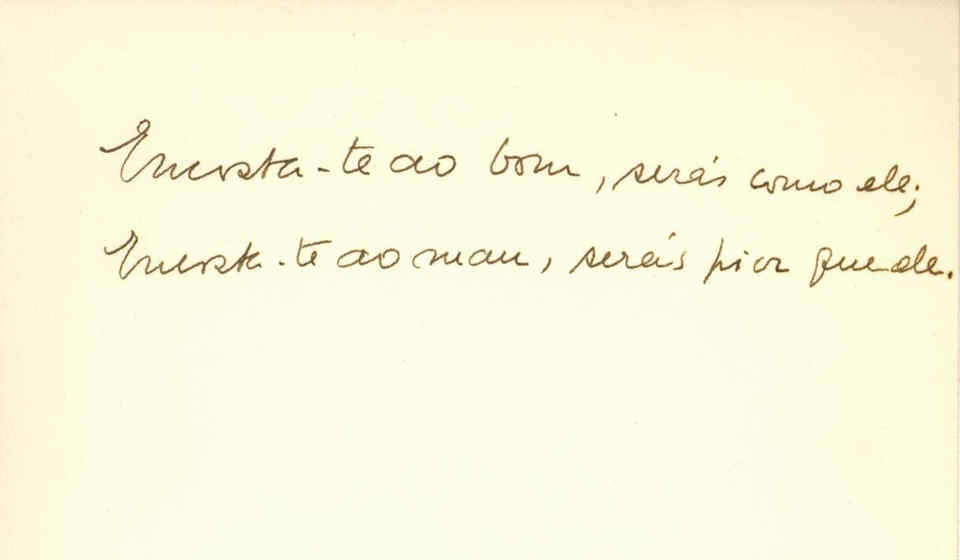 Encosta-te ao bom, serás como ele;
Encosta-te ao mau, serás pior que ele.